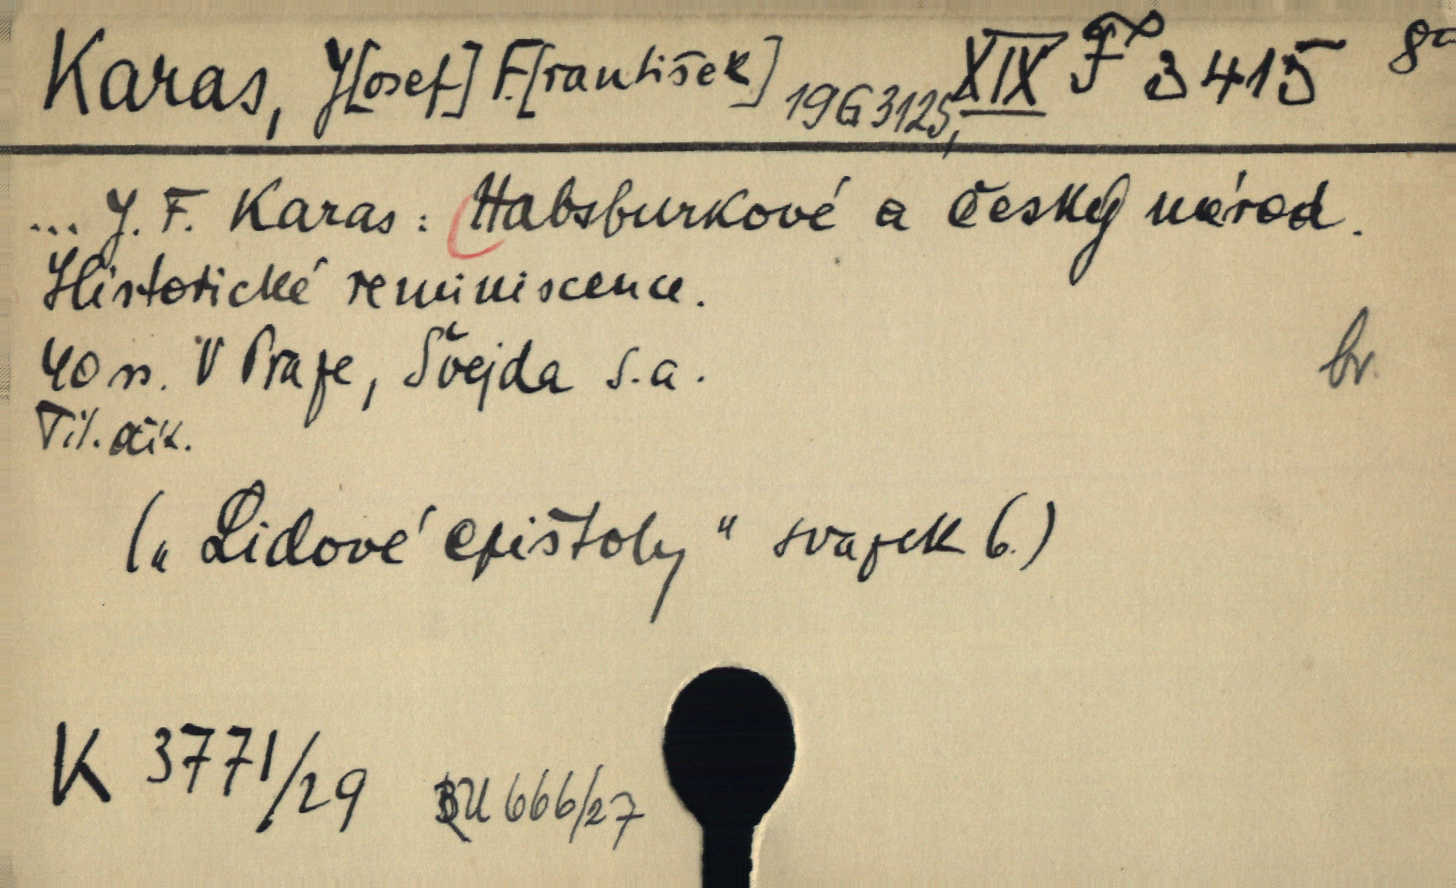 Karas, J[osef] F.[rantišek] 19G3125, XIX F 3415 8°
... J. F. Karas: Habsburkové a český národ.
Historické reminiscence.
40 s. V Praze, Švejda s.a.
br.
Tit. obálk.
(„Lidové epištoly“ svazek 6.)
K 3771/29 BU 666/27